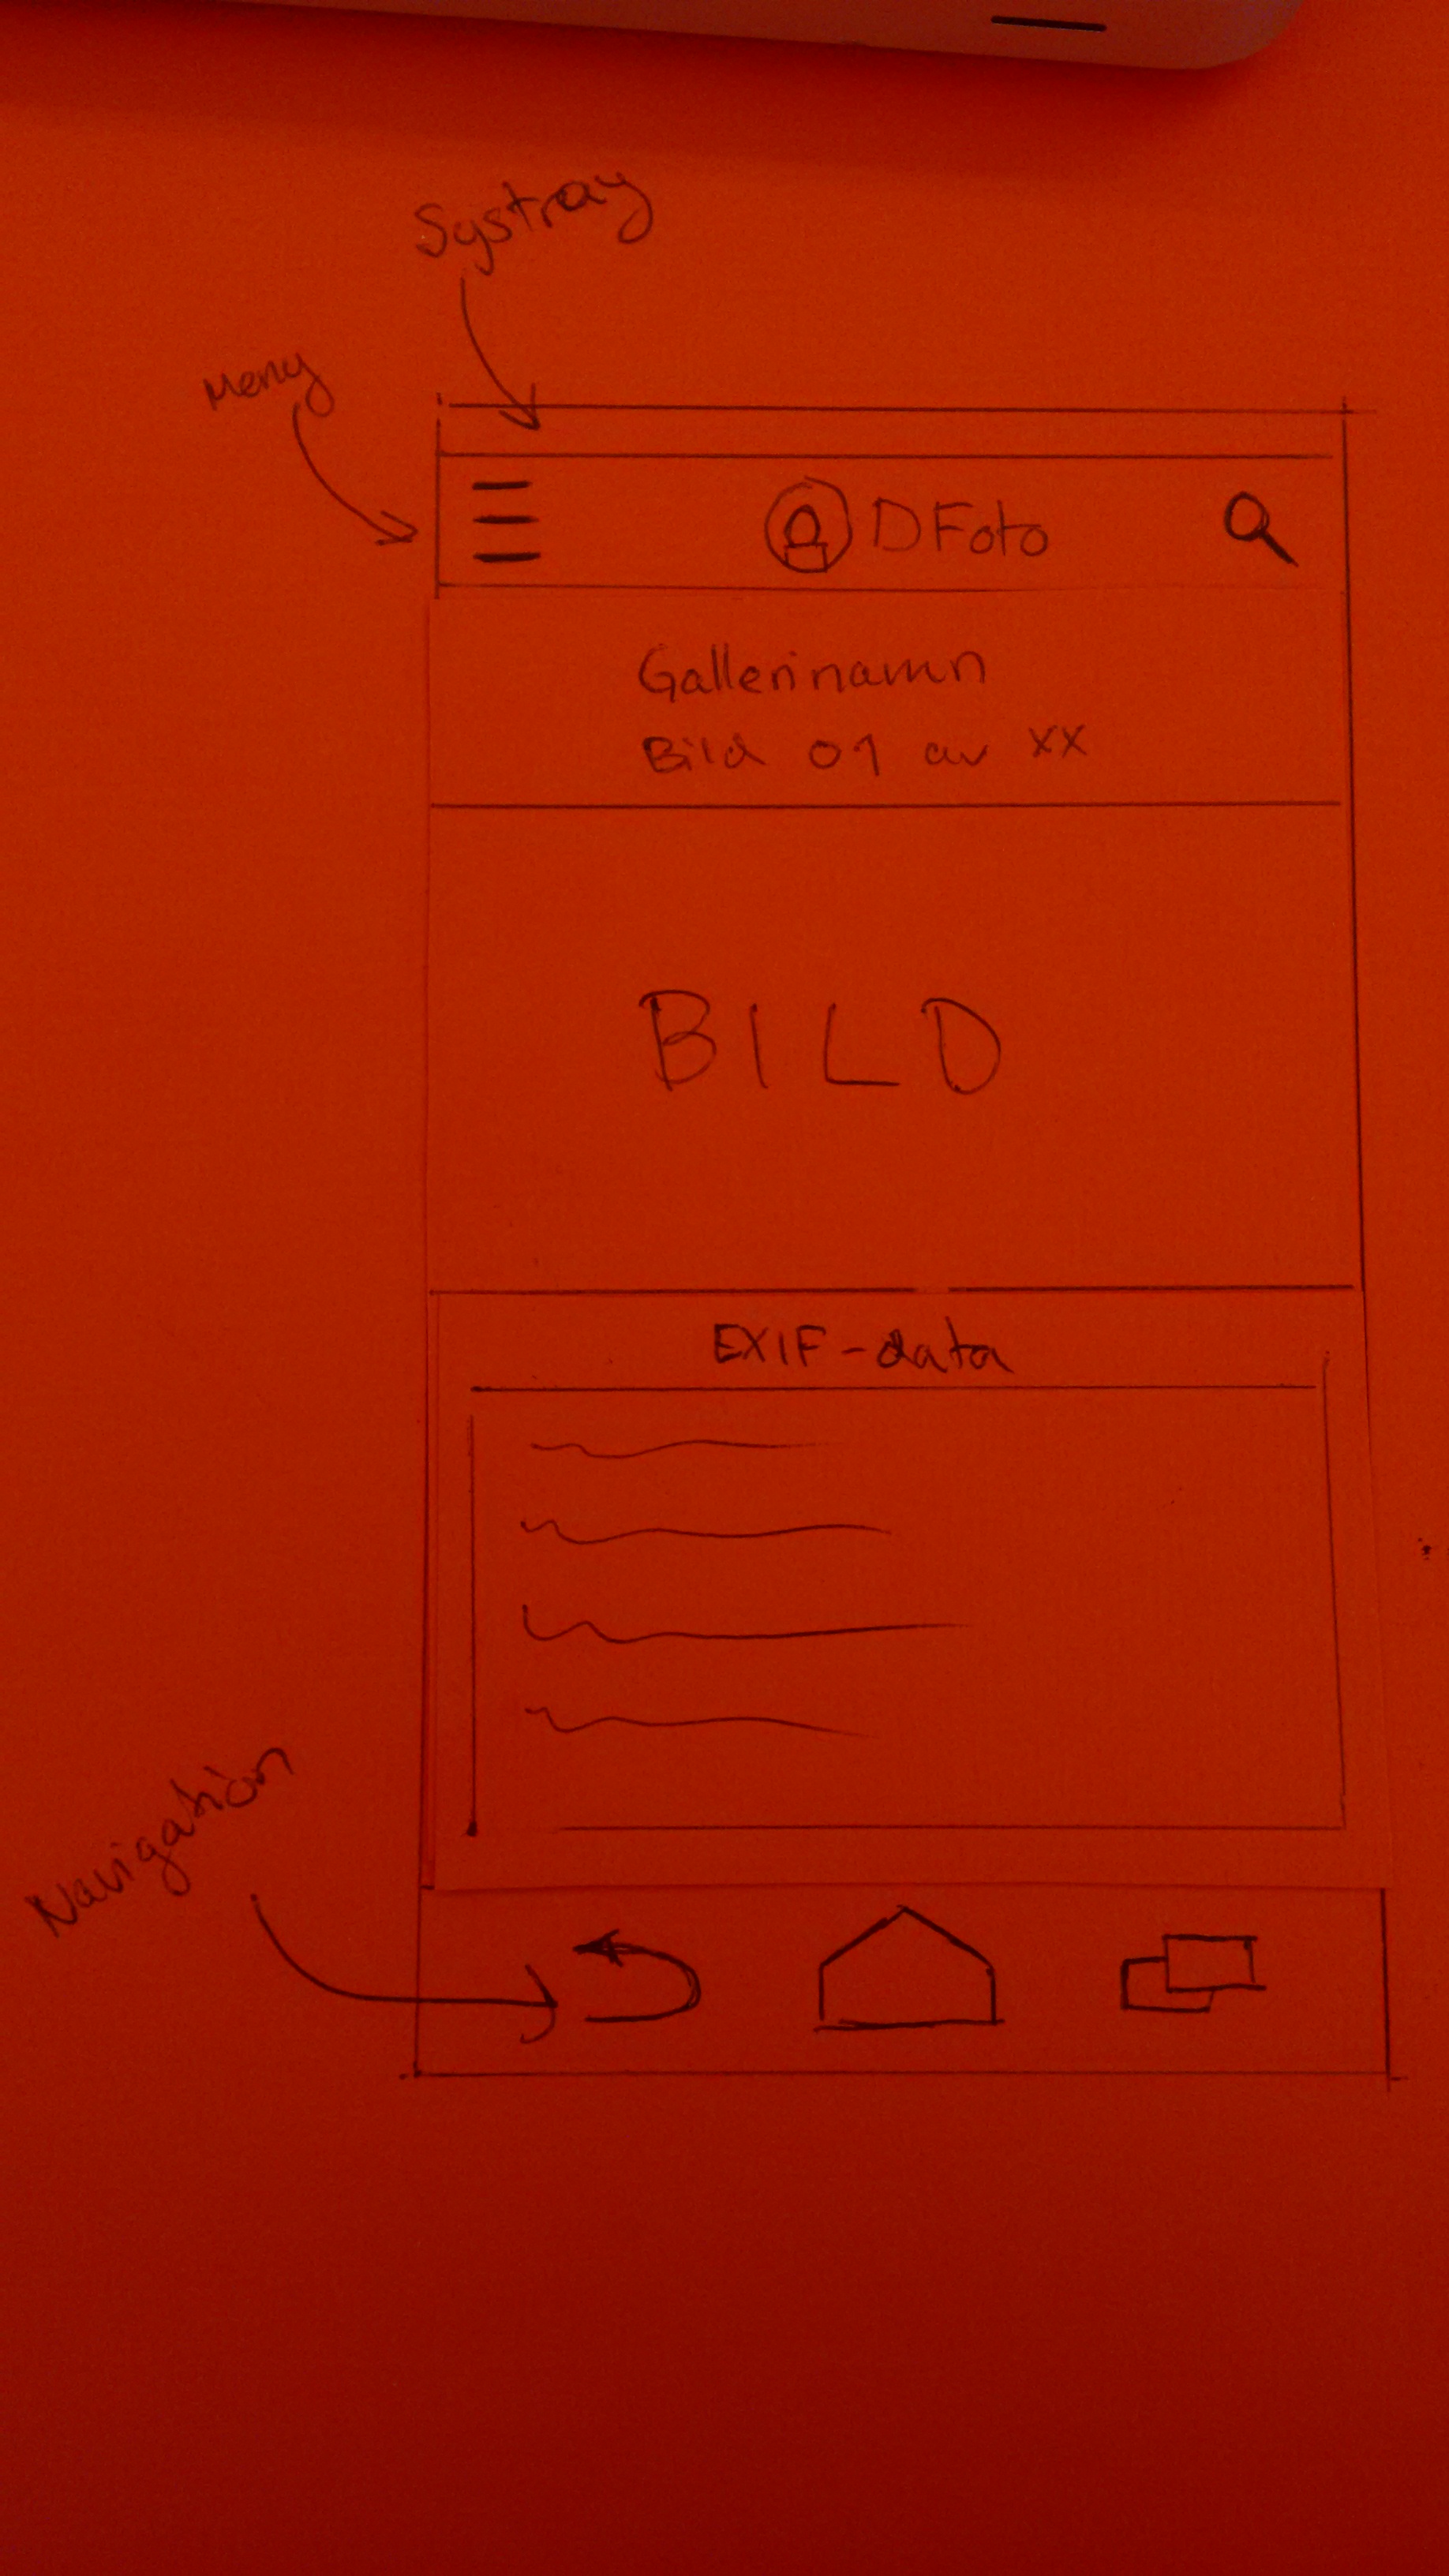 Systray
Meny
DFoto
Gallerinamn
Bild 01 av XX
BILD
EXIF-data
Navigation